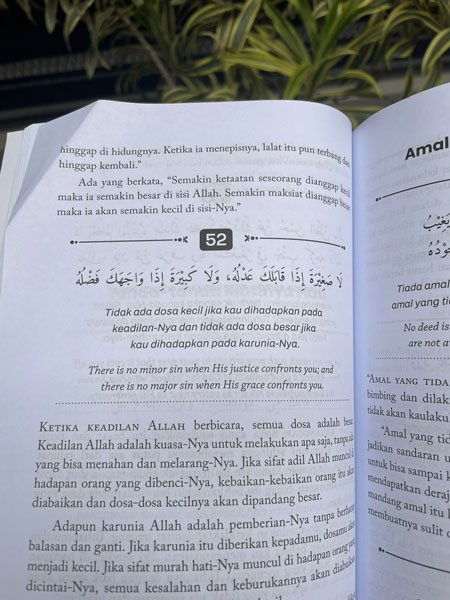 hinggap di hidungnya. Ketika ia menepisnya, lalat itu pun terbang dan
hinggap kembali.”
Ada yang berkata, “Semakin ketaatan seseorang dianggap kecil
maka ia semakin besar di sisi Allah. Semakin maksiat dianggap besar
maka ia akan semakin kecil di sisi-Nya.”
52
لَا صَغِيْرَةَ إِذَا قَابَلَكَ عَدْلُهُ، وَلَا كَبِيْرَةَ إِذَا وَاجَهَكَ فَضْلُهُ
Tidak ada dosa kecil jika kau dihadapkan pada
keadilan-Nya dan tidak ada dosa besar jika
kau dihadapkan pada karunia-Nya.
There is no minor sin when His justice confronts you; and
there is no major sin when His grace confronts you.
KETIKA KEADILAN ALLAH berbicara, semua dosa adalah besar.
Keadilan Allah adalah kuasa-Nya untuk melakukan apa saja, tanpa ada
yang bisa menahan dan melarang-Nya. Jika sifat adil Allah muncul di
hadapan orang yang dibenci-Nya, kebaikan-kebaikan orang itu akan
diabaikan dan dosa-dosa kecilnya akan dipandang besar.
Adapun karunia Allah adalah pemberian-Nya tanpa berharap
balasan dan ganti. Jika karunia itu diberikan kepadamu, dosamu akan
menjadi kecil. Jika sifat murah hati-Nya muncul di hadapan orang yang
dicintai-Nya, semua kesalahan dan keburukannya akan diabaikan
Amal
يَغِيْبُ
وُجُوْدُهُ
Tiada amal
amal yang tid
No deed is
are not a
“AMAL YANG TIDA
bimbing dan dilak
tidak akan kaulaku
“Amal yang tid
jadikan sandaran u
untuk bisa sampai k
mendapatkan deraj
mandang amal itu l
membuatnya sulit d